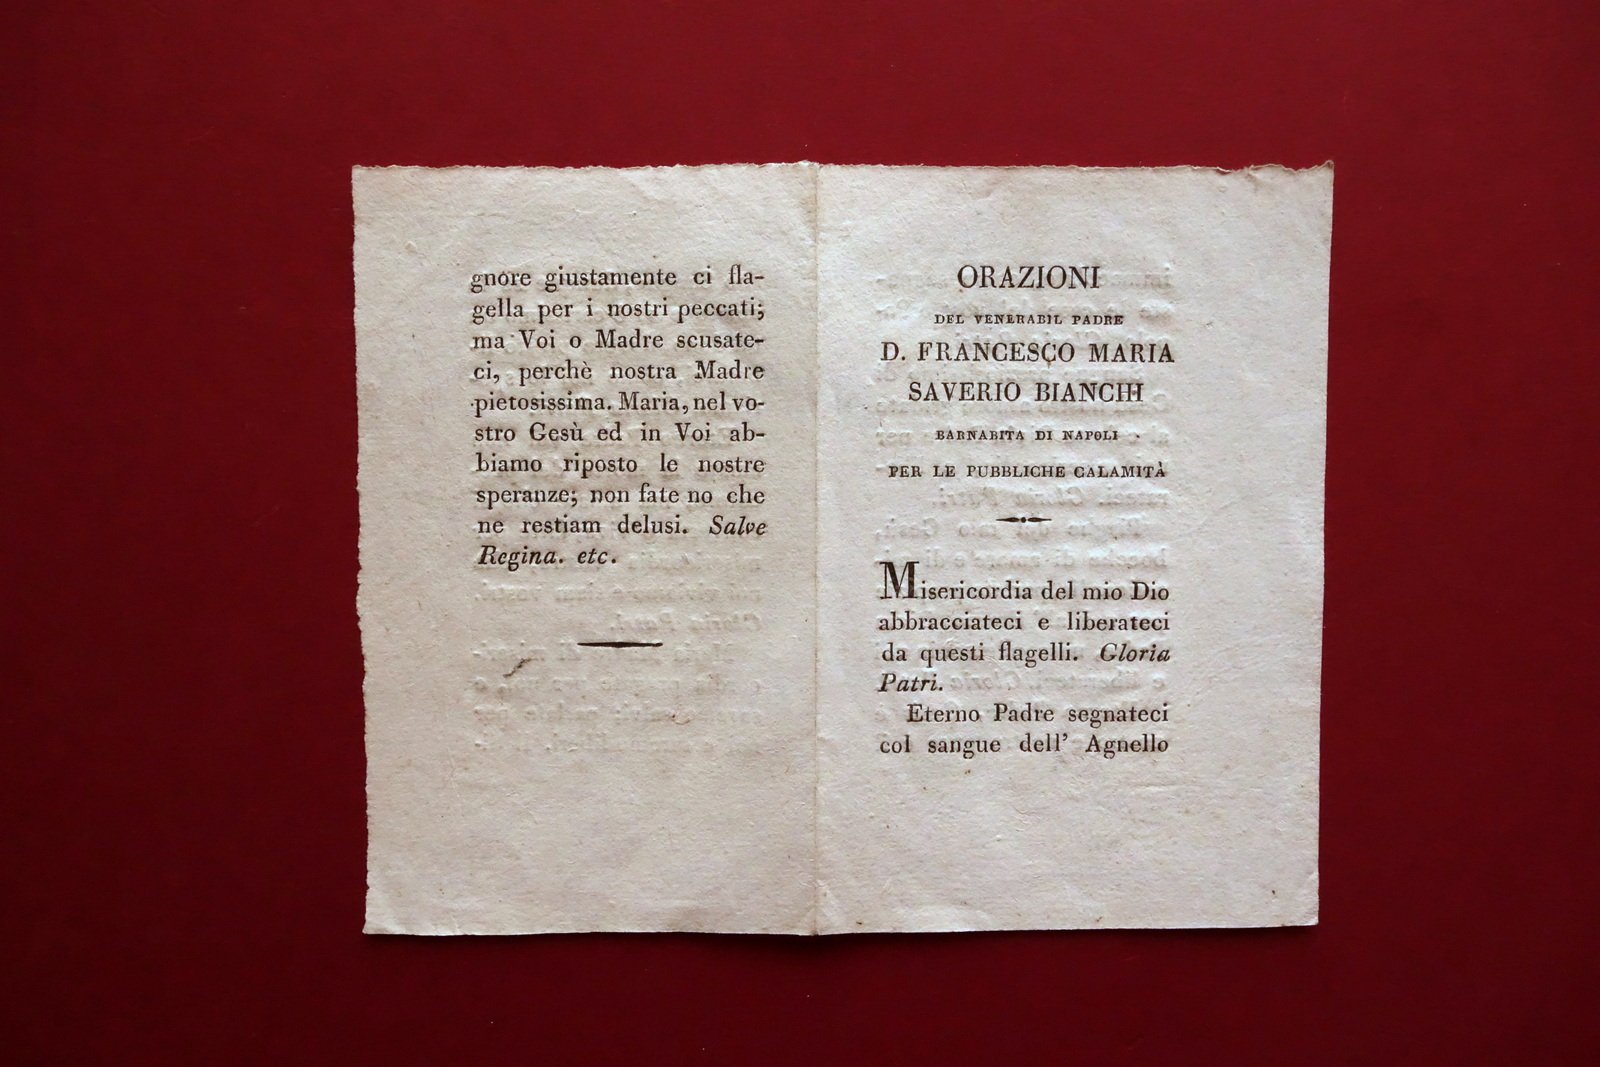 gnore giustamente ci fla-
gella per i nostri peccati;
ma Voi o Madre scusate-
ci, perchè nostra Madre
pietosissima. Maria, nel vo-
stro Gesù ed in Voi ab-
biamo riposto le nostre
speranze; non fate no che
ne restiam delusi. Salve
Regina. etc.
ORAZIONI
DEL VENERABIL PADRE
D. FRANCESCO MARIA
SAVERIO BIANCHI
BARNABITA DI NAPOLI
PER LE PUBBLICHE CALAMITÀ
Misericordia del mio Dio
abbracciateci e liberateci
da questi flagelli. Gloria
Patri.
Eterno Padre segnateci
col sangue dell' Agnello